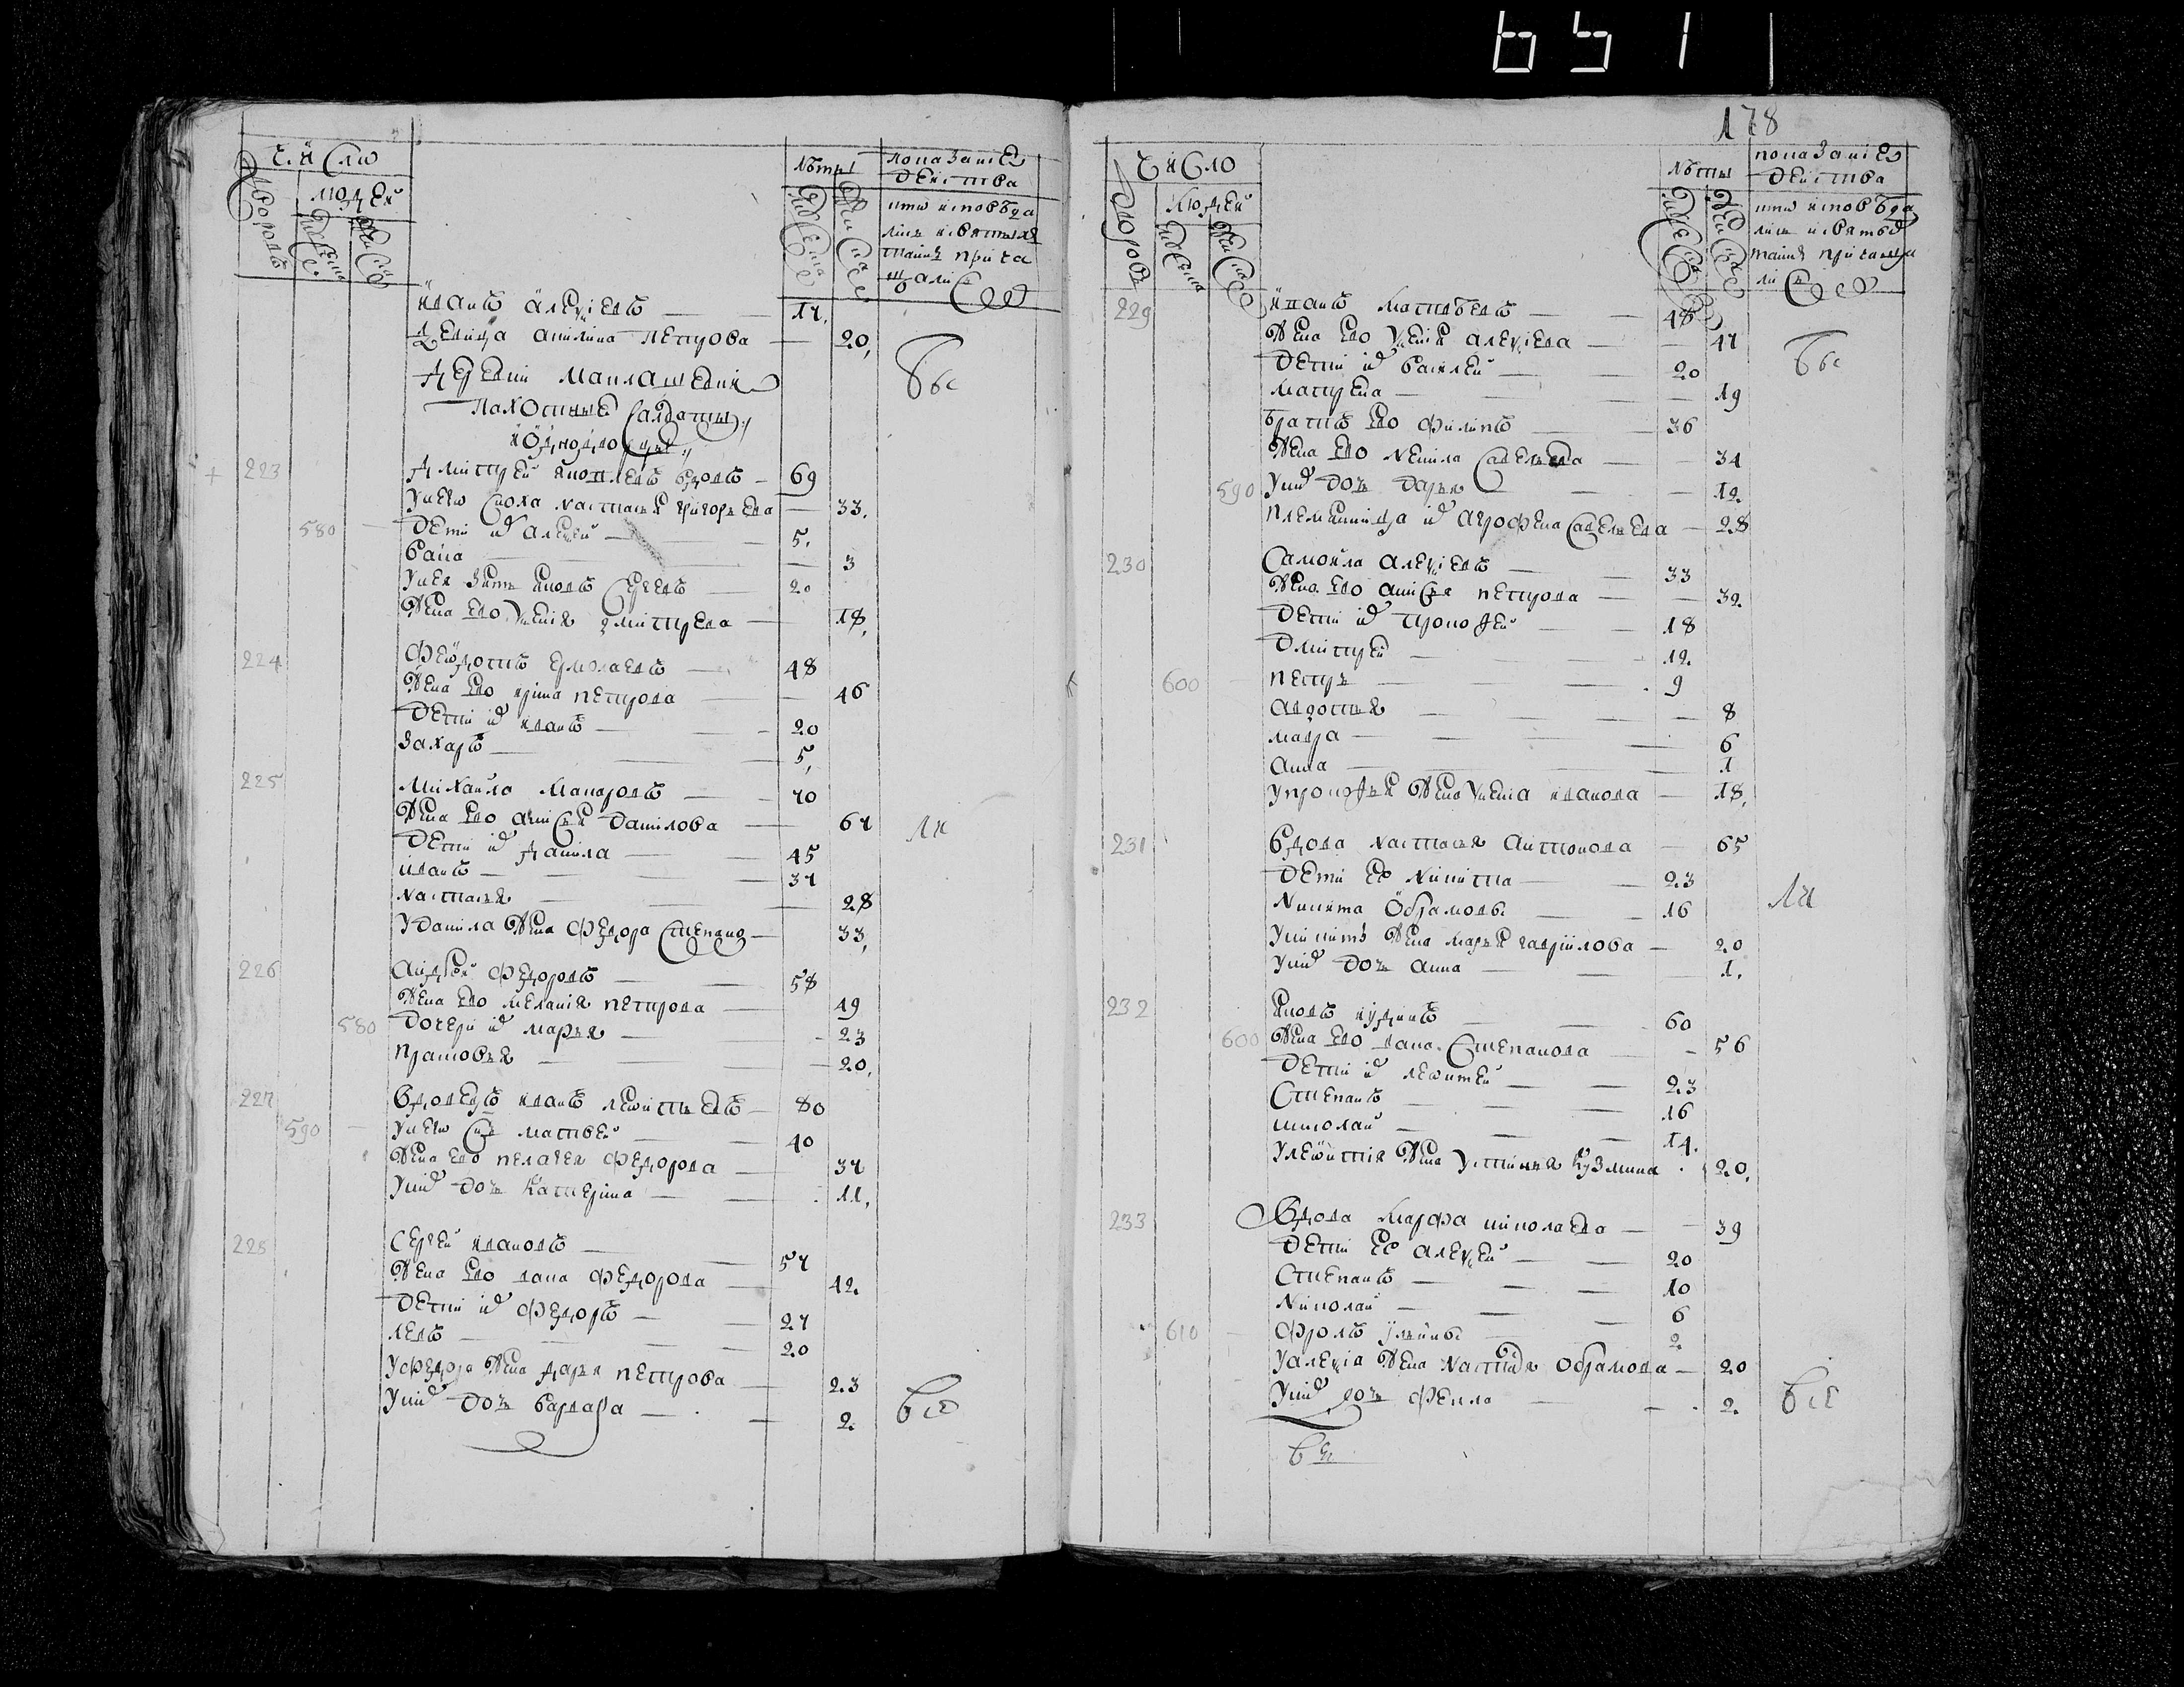 651
178
Число
дворовъ
людей
мужеска
женска
лѣты
мужеска
женска
показание
действа
кто исповѣда
лись и святыхъ
таинъ прича
щались
Иванъ Алеѯіевъ 17
девица Акилина Петрова 20
Деревни
пахотные салдаты
и однодворцы
223 Дмитрей вдовъ 69
у него сноха Настасья Григорьева 33
580 дети их Алеѯей 5
3
у нея зять Яковъ Сергеевъ 20
жена его Ѯения Дмитрева 18
224 Федотъ Ермолаевъ 48
жена его Ирина Петрова 46
дети их Иванъ 20
Захаръ 5
225 Михайла Макаровъ 70
жена его Анисья Данилова 67
дети их Данила 45
Иванъ 37
Настасья 28
у Данила жена Федора Степано 33
226 Андрей Федоровъ 58
жена его Мелания Петрова 49
580 дочери их Марья 23
Прасковья 20
227 вдовецъ Иванъ Леонтьевъ 80
590 у него снъ Матвей 40
жена его Пелагея Федорова 37
у них дочь Катерина 11
228 Сергей Ивановъ 57
жена его Федорова 42
дети их Федоръ 27
Левъ 20
у Федора жена Дарья Петрова 23
у них дочь Варвара 2
всѣ
Число
дворовъ
людей
мужеска
женска
лѣты
мужеска
женска
показание
действа
кто исповѣда
лись и святыхъ
таинъ причаща
лись
229 Иванъ Матвѣевъ 48
жена его Ѯения Алеѯіева 47
дети их Василей 20
Матрена 19
братъ его Филипъ 36
жена его Савельева 34
590 у них дочь Дарья 12
племянница их Агрофена Савельева 28
230 Самойла Алеѯіевъ 33
жена его Анисья Петрова 32
дети их Прокофей 18
Дмитрей 12
600 Петръ 9
Авдотья 8
Мавра 6
Анна 1
у Прокофья жена Ѯения Иванова 18
231 вдова Настасья Антонова 65
дети ее Никита 23
Никита Абрамовъ 16
у Никиты жена Марья Гаврилова 20
у них дочь Анна 1
232 Яковъ Кудинъ 60
600 жена его Степанова 56
дети их Леонтей 23
Степанъ 16
Николай 14
у Леонтия жена Устинья Кузмина 20
233 вдова Марфа Николаева 39
дети ее Алеѯей 20
Степанъ 10
Николай 6
610 Фролъ 2
у Алеѯіа жена Настасья Обрамова 20
у них дочь Фекла 2
всѣ